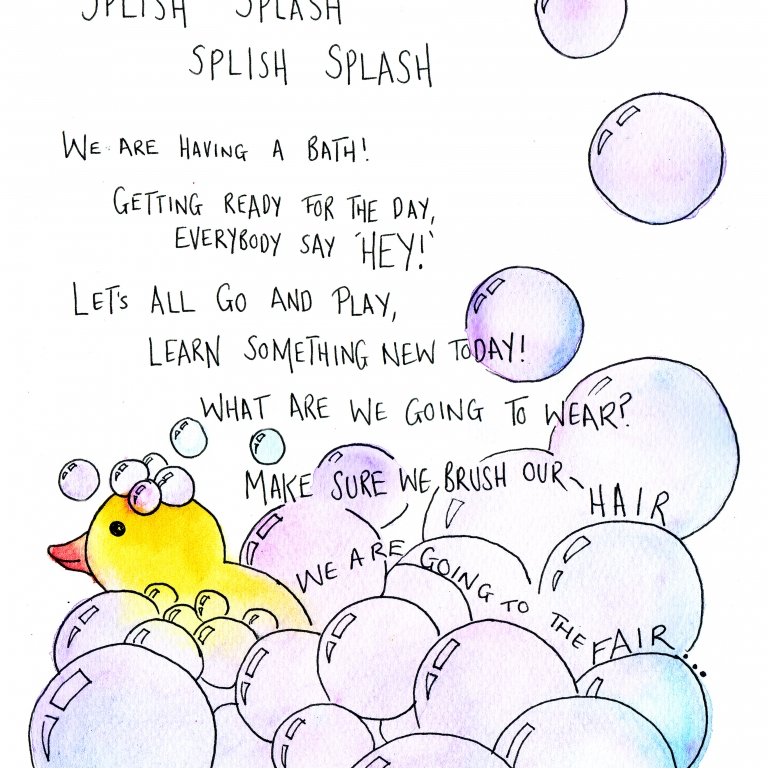 SPLISH SPLASH
SPLISH SPLASH
WE ARE HAVING A BATH!
GETTING READY FOR THE DAY,
EVERYBODY SAY 'HEY!'
LET'S ALL GO AND PLAY,
LEARN SOMETHING NEW TODAY!
WHAT ARE WE GOING TO WEAR?
MAKE SURE WE BRUSH OUR HAIR
WE ARE GOING TO THE FAIR....